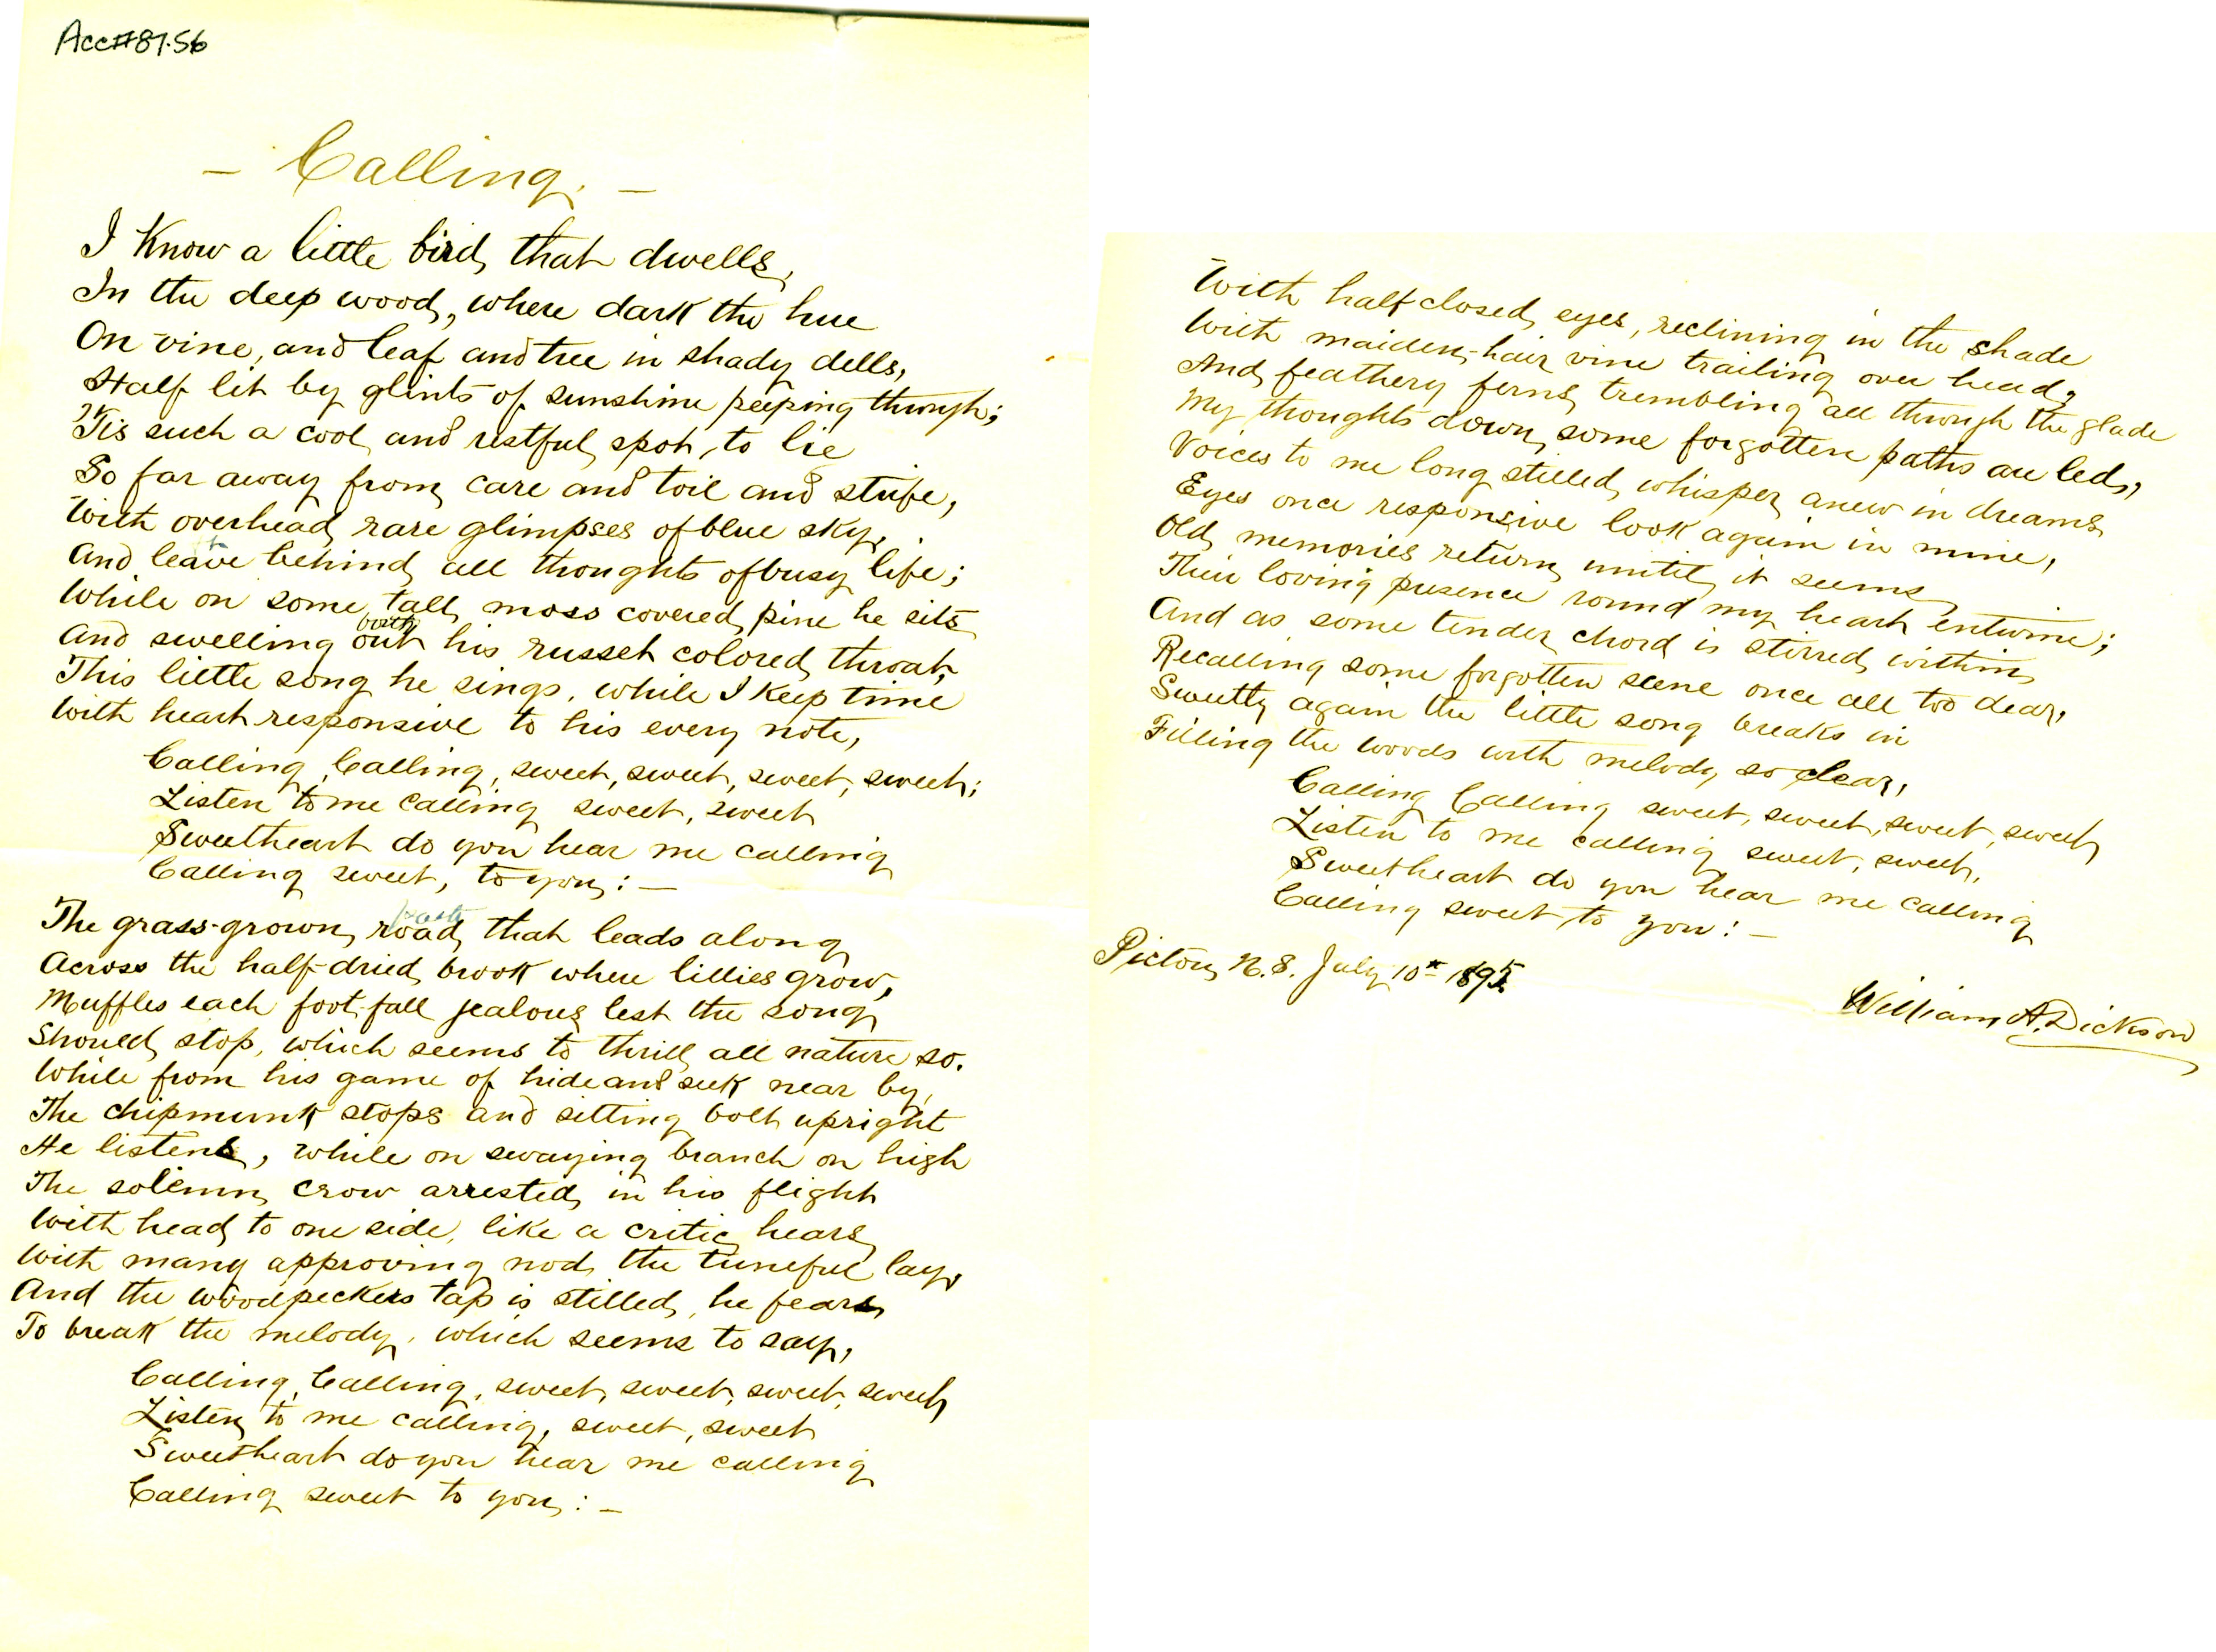 Acc#87.56
— Calling. —
I Know a little bird, that dwells,
In the deep wood, where dark the hue
On vine, and leaf and tree in shady dells,
Half lit by glints of sunshine peeping through;
'Tis such a cool, and restful spot, to lie
So far away from care and toil and strife,
With overhead, rare glimpses of blue sky,
And leave behind all thoughts of busy life;
While on some tall moss covered pine he sits
And swelling out his russet colored throat,
This little song he sings, while I Keep time
With heart responsive to his every note,
Calling, Calling, sweet, sweet, sweet, sweet;
Listen to me Calling sweet, sweet
Sweetheart do you hear me calling
Calling sweet, to you: —
The grass-grown road that leads along
Across the half-dried brook where lillies grow,
Muffles each foot-fall jealous lest the song
Should stop, which seems to thrill all nature so.
While from his game of hide and seek near by,
The chipmunk stops and sitting bolt upright
He listens, while on swaying branch on high
The solemn crow arrested in his flight
With head to one side, like a critic hears
With many approving nod, the tuneful lay,
And the woodpeckers tap is stilled, he fears
To break the melody, which seems to say,
Calling, Calling, sweet, sweet, sweet, sweet
Listen to me calling, sweet, sweet
Sweetheart do you hear me calling
Calling sweet to you: —
With half closed eyes, reclining in the shade
With maiden-hair vine trailing over head,
And feathery ferns trembling all through the glade
My thoughts down some forgotten paths are led,
Voices to me long stilled, whisper anew in dreams
Eyes once responsive look again in mine,
Old memories return, until it seems
Their loving presence round my heart entwine;
And as some tender chord is stirred within
Recalling some forgotten scene once all too dear,
Sweetly again the little song breaks in
Filling the woods with melody so clear,
Calling Calling sweet, sweet, sweet, sweet
Listen to me calling sweet, sweet,
Sweetheart do you hear me calling
Calling sweet to you! —
Pictou, N.S. July 10th 1895.
William A. Dickson